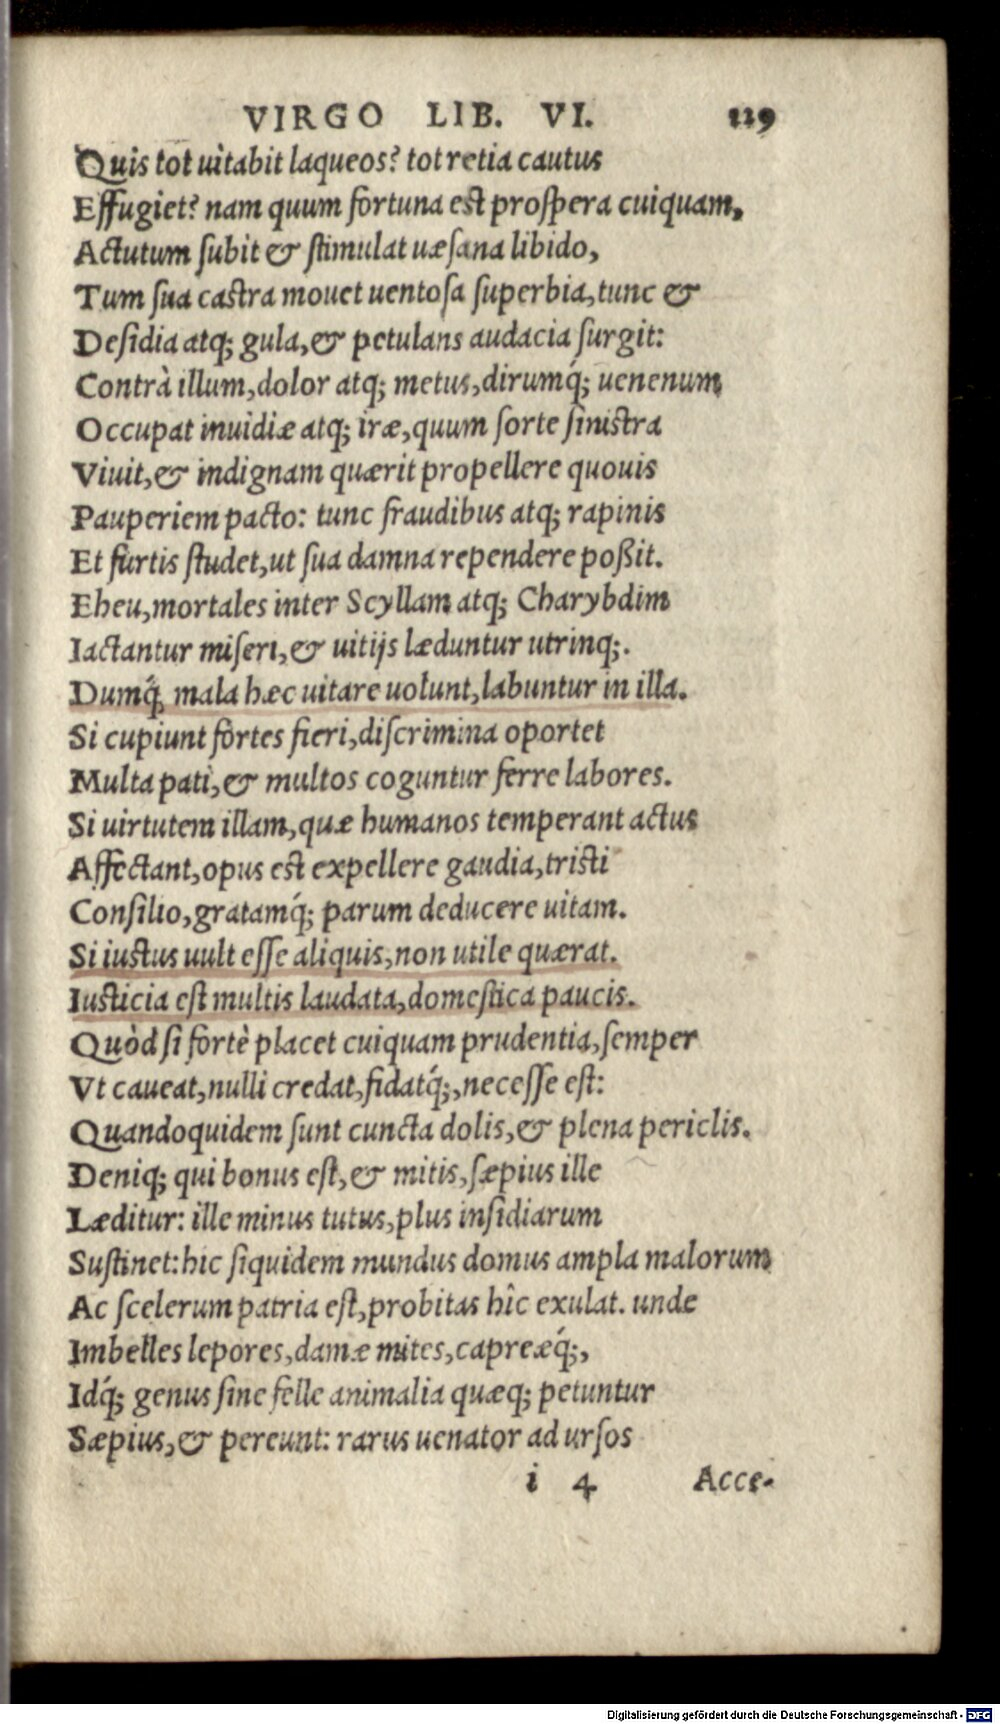 VIRGO LIB. VI. 129
Quis tot uitabit laqueos? tot retia cautus
Effugiet? nam quum fortuna est prospera cuiquam,
Actutum subit & stimulat uæsana libido,
Tum sua castra mouet uentosa superbia, tunc &
Desidia atq; gula, & petulans audacia surgit:
Contrà illum, dolor atq; metus, dirumq́; uenenum
Occupat inuidiæ atq; iræ, quum sorte sinistra
Viuit, & indignam quærit propellere quouis
Pauperiem pacto: tunc fraudibus atq; rapinis
Et furtis studet, ut sua damna rependere poßit.
Eheu, mortales inter Scyllam atq; Charybdim
Iactantur miseri, & uitijs læduntur utrinq;.
Dumq́; mala hæc uitare uolunt, labuntur in illa.
Si cupiunt fortes fieri, discrimina oportet
Multa pati, & multos coguntur ferre labores.
Si uirtutem illam, quæ humanos temperant actus
Affectant, opus est expellere gaudia, tristi
Consilio, gratamq́; parum deducere uitam.
Si iustus uult esse aliquis, non utile quærat.
Iusticia est multis laudata, domestica paucis.
Quòd si fortè placet cuiquam prudentia, semper
Vt caueat, nulli credat, fidatq́;, necesse est:
Quandoquidem sunt cuncta dolis, & plena periclis.
Deniq; qui bonus est, & mitis, sæpius ille
Læditur: ille minus tutus, plus insidiarum
Sustinet: hic siquidem mundus domus ampla malorum
Ac scelerum patria est, probitas hîc exulat. unde
Imbelles lepores, damæ mites, capreæq́;,
Idq́; genus sine felle animalia quæq; petuntur
Sæpius, & pereunt: rarus uenator ad ursos
i 4 Acce-
Digitalisierung gefördert durch die Deutsche Forschungsgemeinschaft - DFG